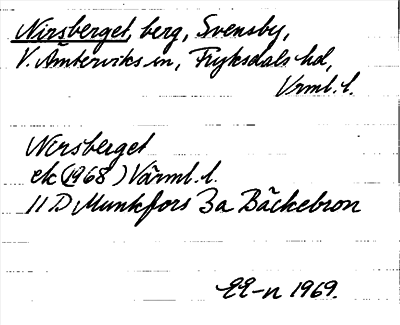 Nirsberget, berg, Svensby,
V. Ämterviks sn, Fryksdals hd,
Vrml. l.
Nirsberget
ek (1968) Värml. l.
11 D Munkfors 3a Bäckebron
EE-n 1969.